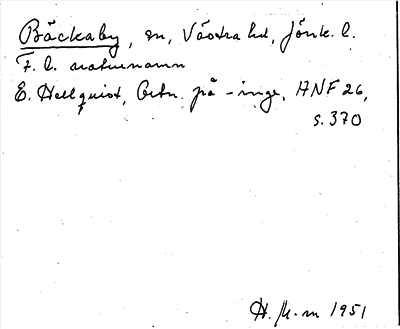 Bäckaby, sn, Västra hd, Jönk. l.
F. l. naturnamn
E. Hellquist, Ortn. på -inge, ANF 26,
s. 370
H. 1951